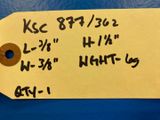 KSC 877/362
L-7/8" H-1 1/2"
W-3/8" WGHT-6g
QTY-1